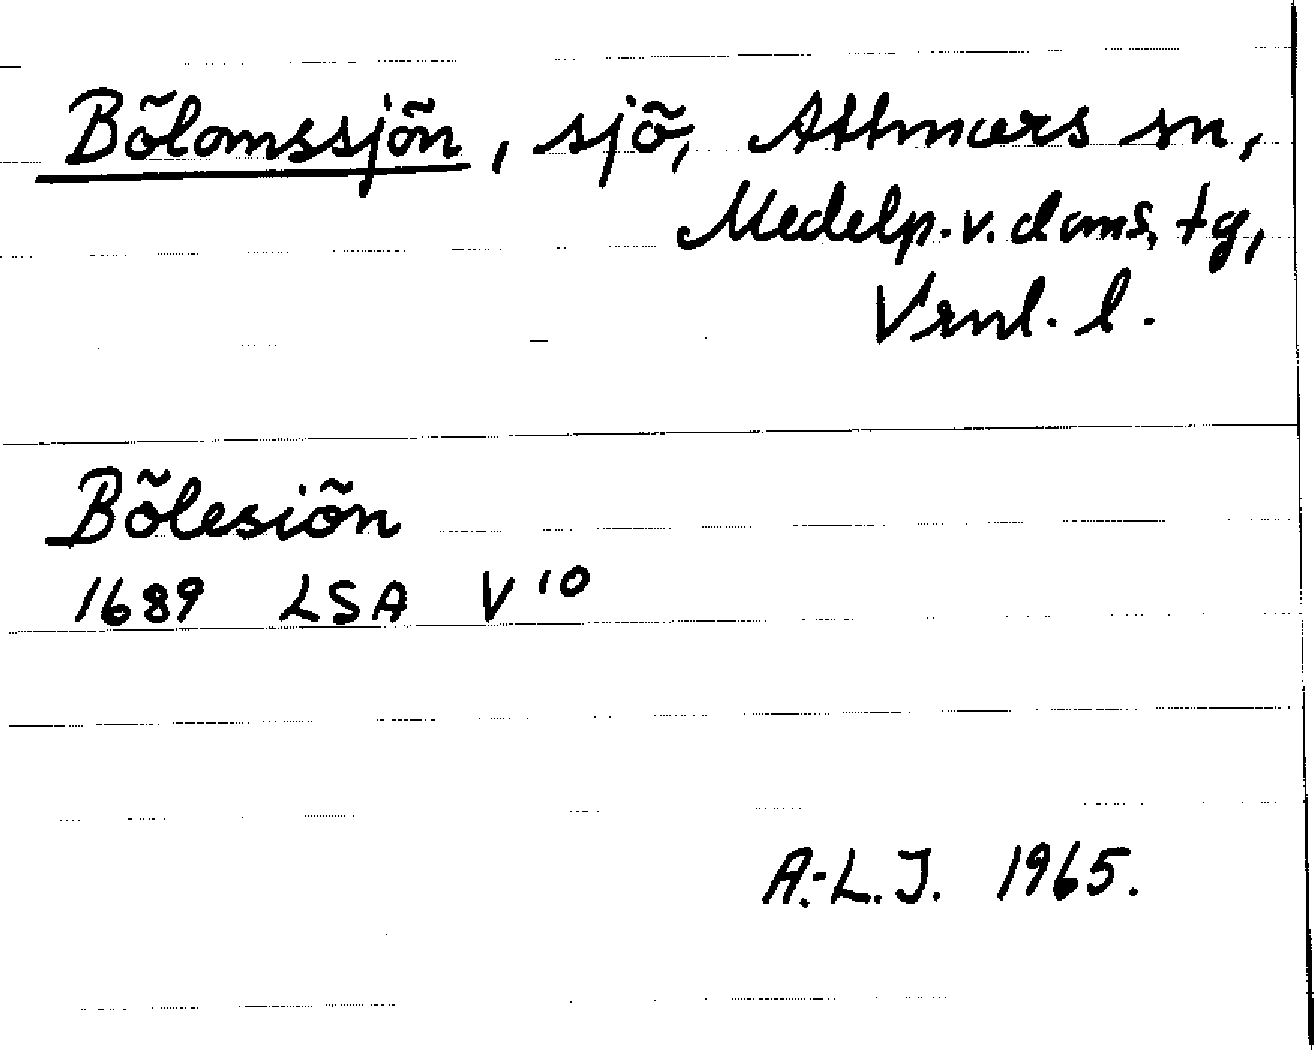 Bölomssjön, sjö, Attmars sn,
Medelp. v. doms. tg,
Vrnl. l.
Bölesiön
1689 LSA V 10
A.-L.J. 1965.